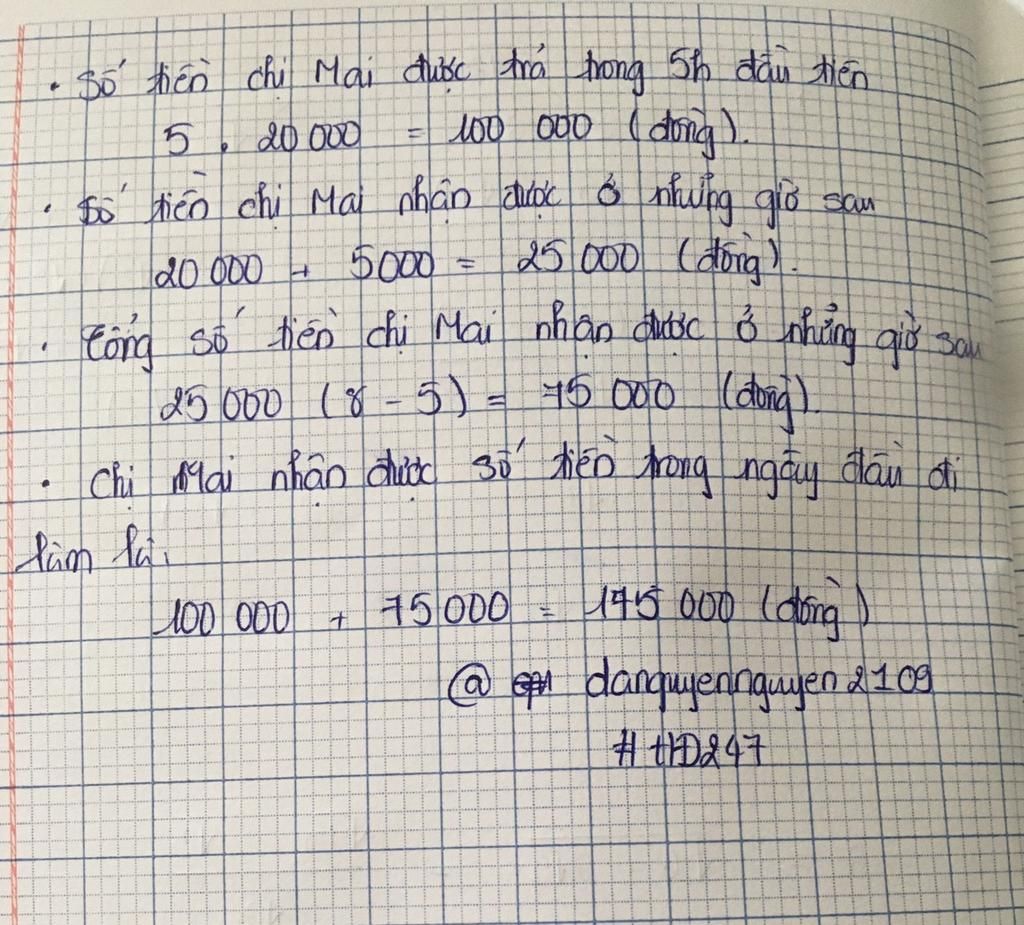 . Số tiền chị Mai được trả trong 5h đầu tiên
5 . 20 000 = 100 000 (đồng).
. Số tiền chị Mai nhận được ở những giờ sau
20 000 + 5000 = 25 000 (đồng).
. Tổng số tiền chị Mai nhận được ở những giờ sau
25 000 (8 - 5) = 75 000 (đồng).
. Chị Mai nhận được số tiền trong ngày đầu đi
làm là.
100 000 + 75 000 = 175 000 (đồng)
@ danguyennguyen2109
# HD247